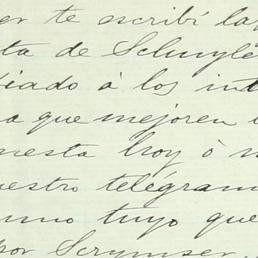 er te escribí la
ta de Schuyle
iado á los int
a que mejoren
uesta hoy ó
uestro telégram
umo tuyo que
por Scrymser,